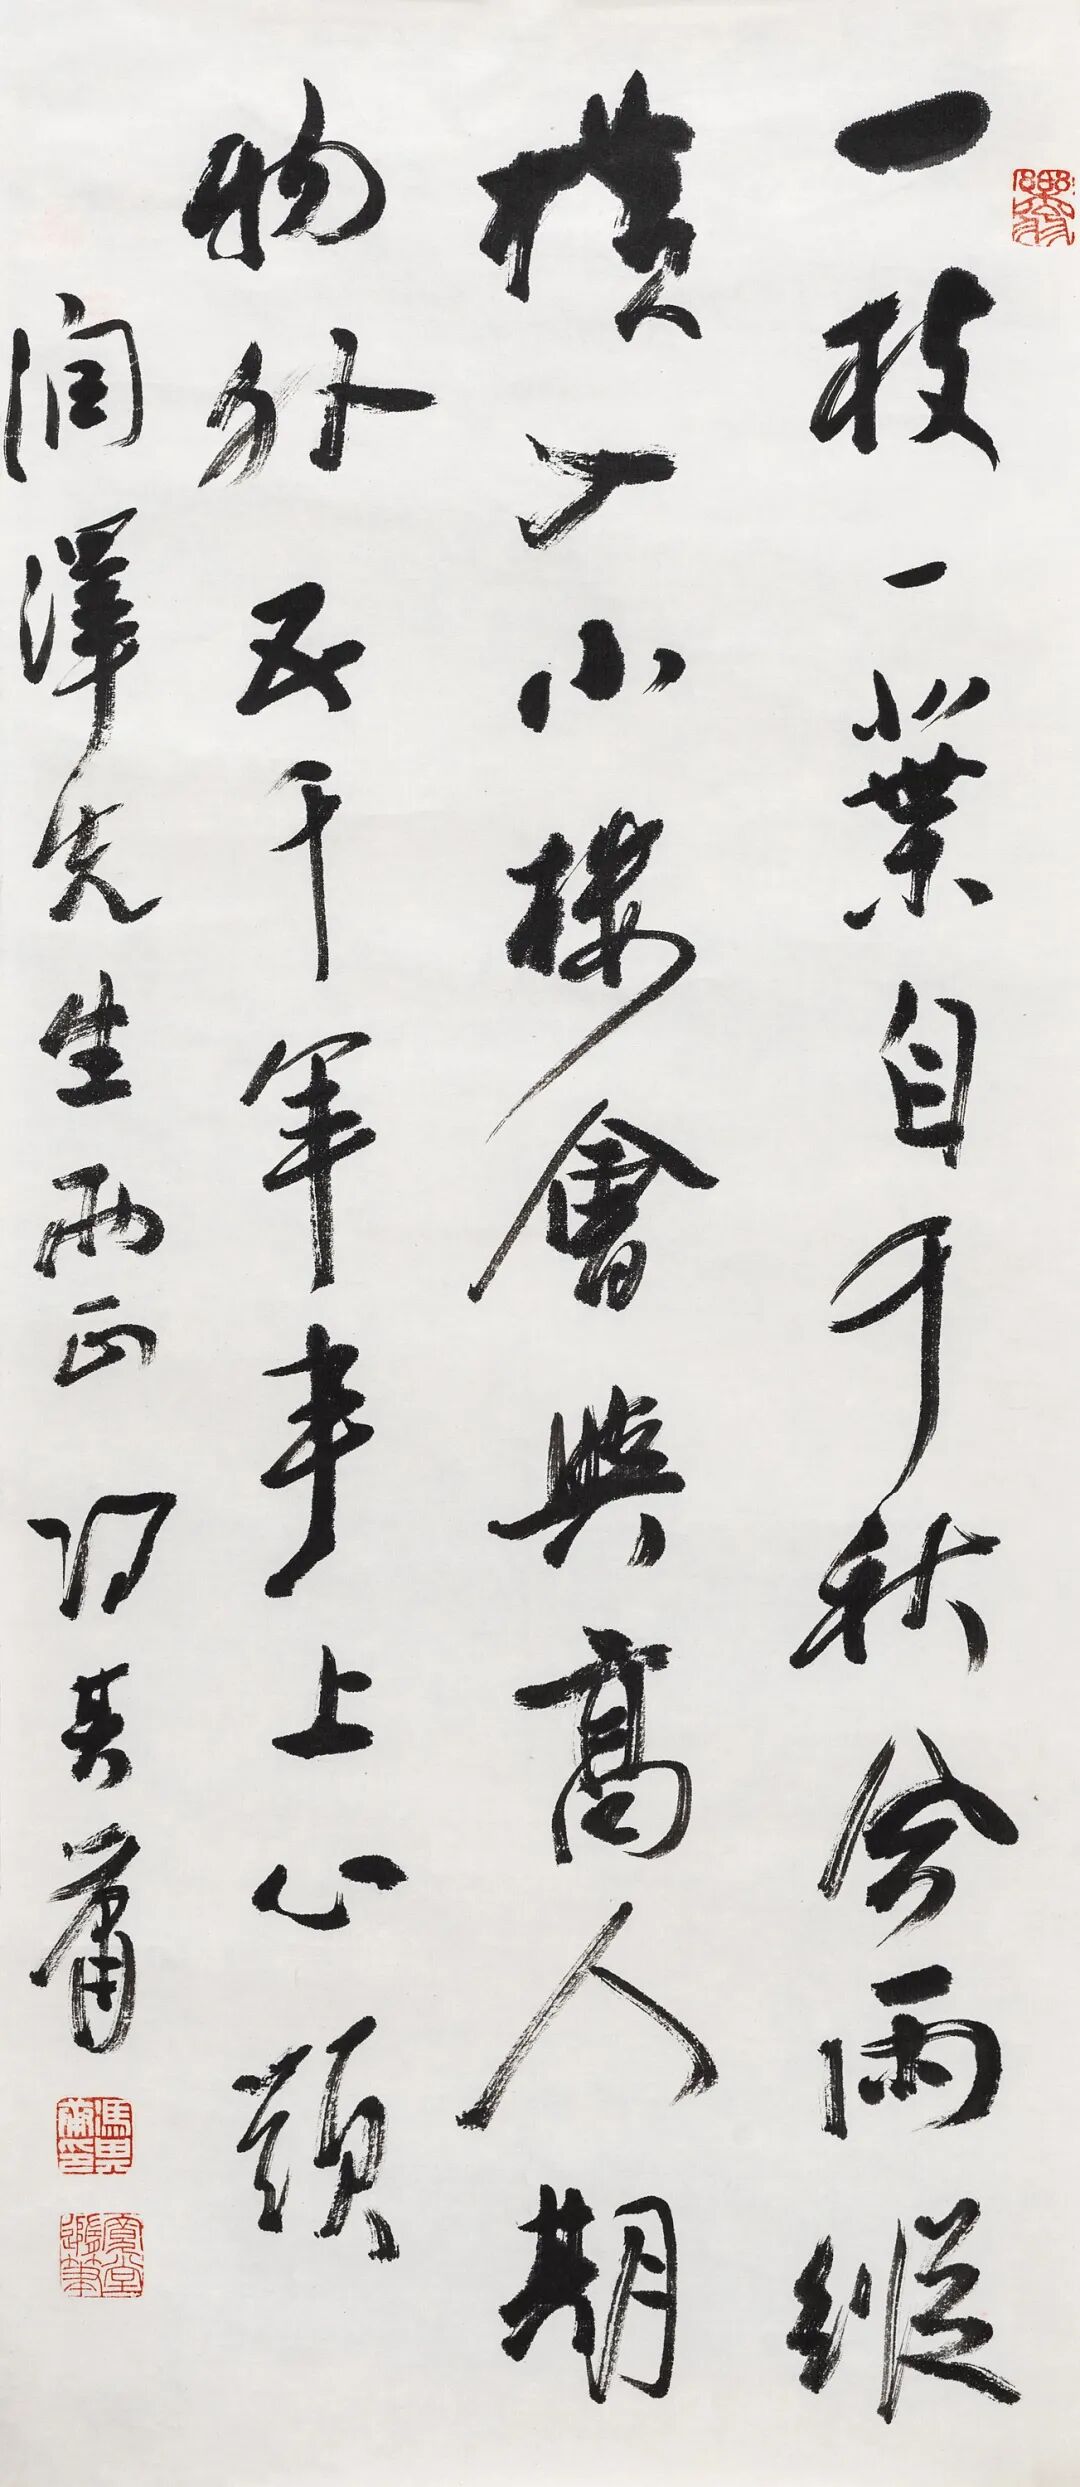 一枝一葉自千秋風雨縱
橫入小樓會與高人期
物外五千年事上心頭
潤澤先生兩正 馮其庸
馮其庸印